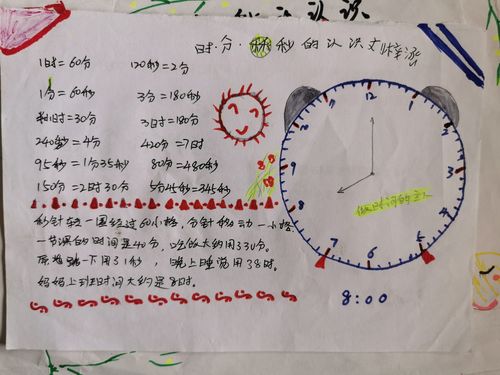 时、分、秒的认识
1时=60分 120秒=2分
1分=60秒 3分=180秒
半时=30分 3时=180分
240秒=4分 420分=7时
95秒=1分35秒 80分=480秒
150分=2时30分 5分45秒=345秒
秒针转一圈经过60小格,分针移动一小格
一节课的时间是40分,吃饭大约用30分。
一下用31秒,晚上睡觉用38时。
妈妈上班时间大约是8时。
12
11
1
10
2
9
3
8
4
7
6
5
做时间的主人
8:00